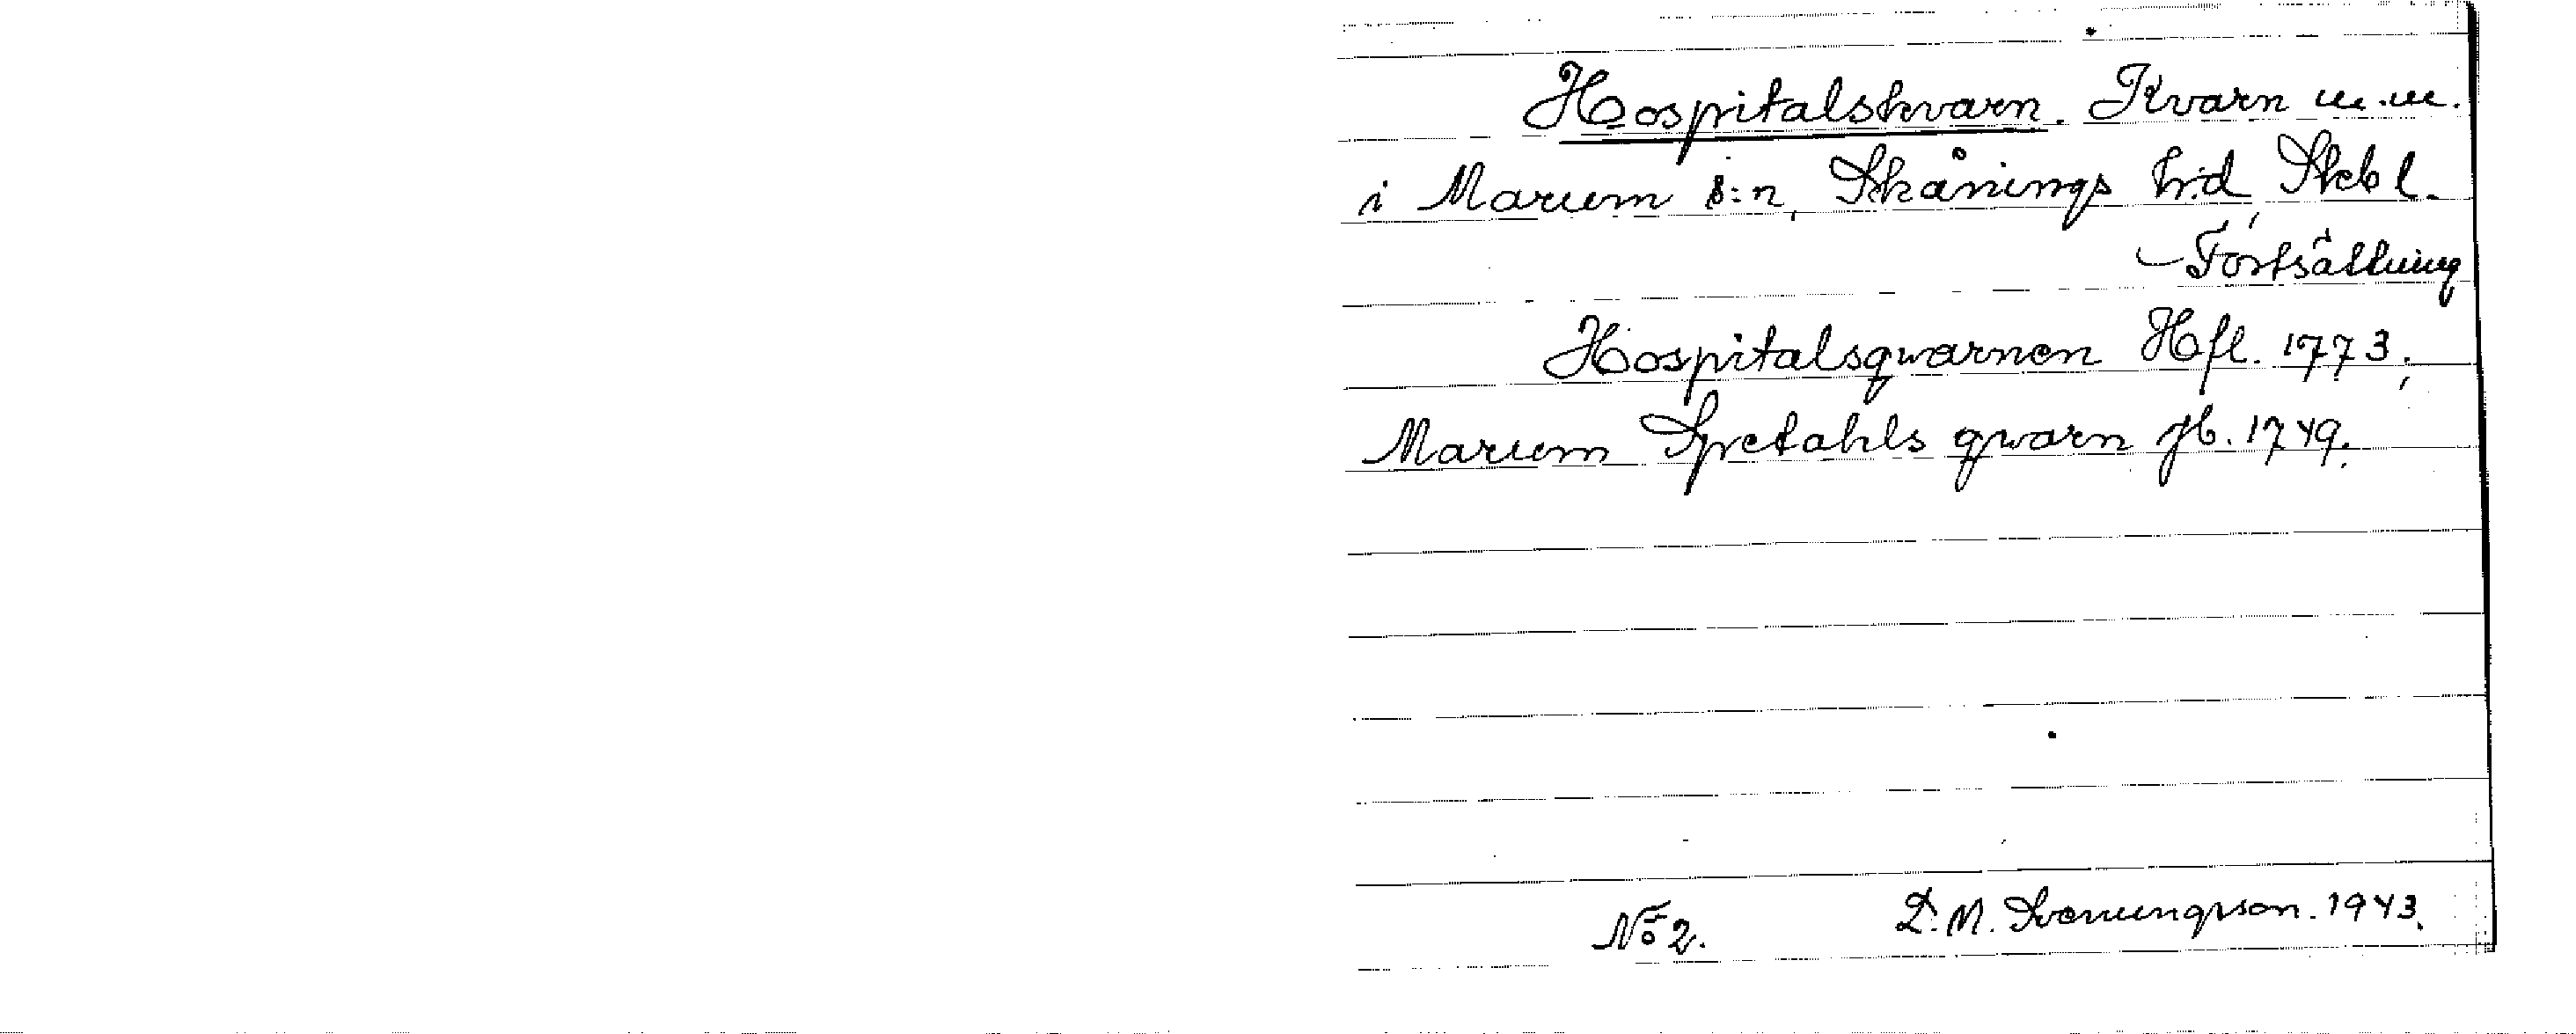 Hospitalskvarn. Kvarn m.m.
i Marum s:n, Skånings h:d, Skbl.
– Fortsättning
Hospitalsqwarnen Hfl. 1773;
Marum Spretahls qwarn jb. 1749.
No 2. D. M. Svenungsson. 1943.